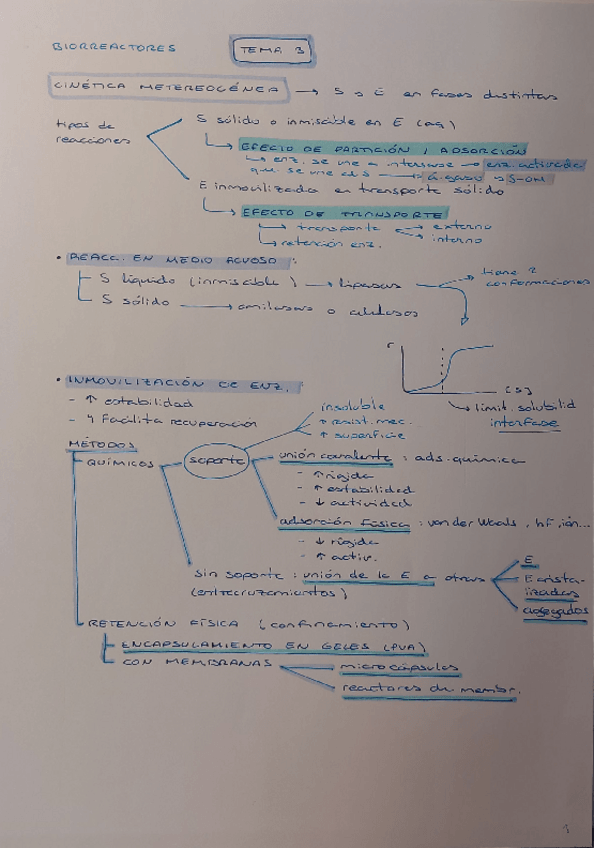 BIORREACTORES TEMA 3
CINÉTICA HETEREOGÉNEA → S o E en fases distintas
tipos de reacciones
S sólido o inmiscible en E (aq)
EFECTO DE PARTICIÓN / ADSORCIÓN
enz. se une a interfase → enz. activada
que se une al S →
E inmovilizada en transporte sólido
EFECTO DE TRANSPORTE
transporte externo
interno
retención enz.
• REACC. EN MEDIO ACUOSO:
S líquido (inmiscible) → lipasas → tiene 2 conformaciones
S sólido → amilasas o celulasas
r
[S]
límit. solubilid
interfase
• INMOVILIZACIÓN DE ENZ.:
- ↑ estabilidad
- Facilita recuperación
insoluble
↑ resist. mec.
↑ superficie
MÉTODOS
QUÍMICOS
soporte
unión covalente: ads. química
- ↑ rígida
- ↑ estabilidad
- ↓ actividad
adsorción física: van der Waals, hf, ión...
- ↓ rígida
- ↑ activ.
sin soporte: unión de la E a otras
(entrecruzamientos)
E
E cristalizadas
agregados
RETENCIÓN FÍSICA (confinamiento)
ENCAPSULAMIENTO EN GELES (PVA)
CON MEMBRANAS
microcápsulas
reactores de membr.
1